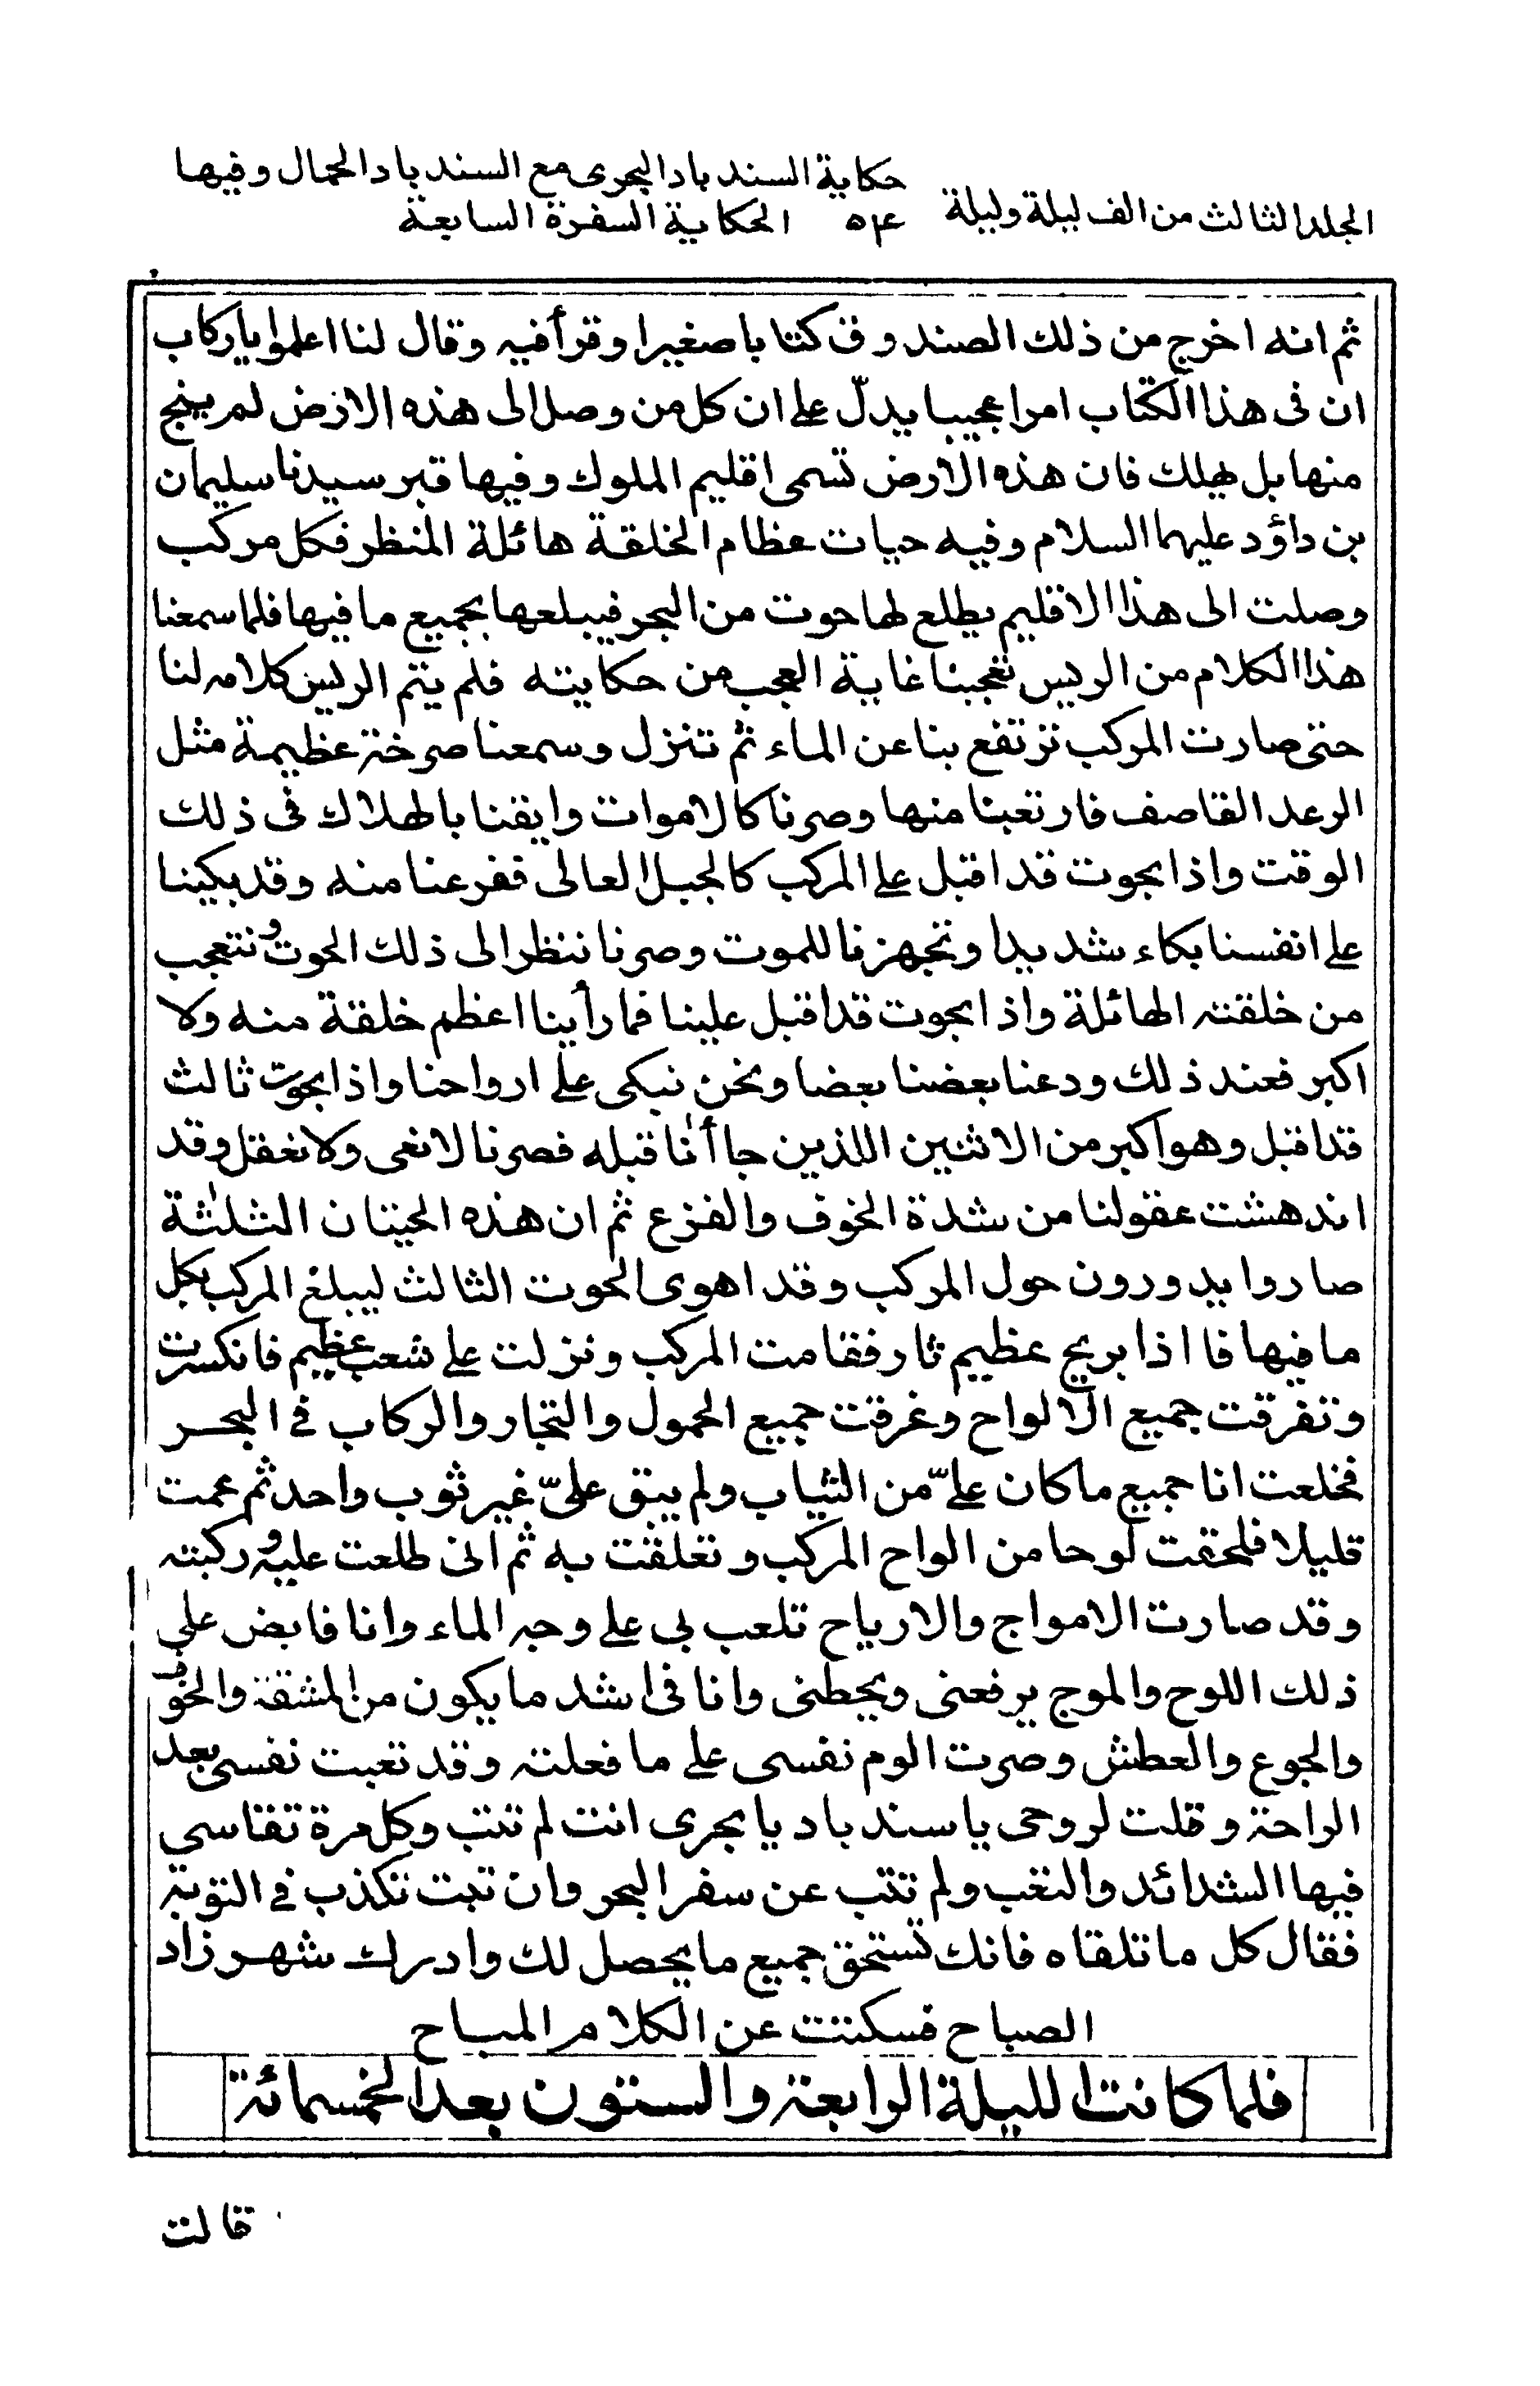 حكاية السندباد البحرى مع السندباد الحمال وفيها
المجلد الثالث من الف ليلة وليلة ٥٤ الحكاية السفرة السابعة
ثم انه اخرج من ذلك الصندوق كتابا صغيرا وقرأ فيه وقال لنا اعلموا ياركاب
ان فى هذا الكتاب امرا عجيبا يدلّ على ان كل من وصل الى هذه الارض لم ينج
منها بل يهلك فان هذه الارض تسمى اقليم الملوك وفيها قبر سيدنا سليمان
بن داؤد عليهما السلام وفيه حيات عظام الخلقة هائلة المنظر فكل مركب
وصلت الى هذا الاقليم يطلع لها حوت من البحر فيبلعها بجميع ما فيها فلما سمعنا
هذا الكلام من الريس تعجبنا غاية العجب من حكايته فلم يتم الريس كلامه لنا
حتى صارت المركب ترتفع بنا عن الماء ثم تنزل وسمعنا صرخة عظيمة مثل
الرعد القاصف فارتعبنا منها وصرنا كالاموات وايقنا بالهلاك فى ذلك
الوقت واذا بحوت قد اقبل على المركب كالجبل العالى ففزعنا منه وقد بكينا
على انفسنا بكاء شديدا وتجهزنا للموت وصرنا ننظر الى ذلك الحوت ونتعجب
من خلقته الهائلة واذا بحوت قد اقبل علينا فما رأينا اعظم خلقة منه ولا
اكبر فعند ذلك ودعنا بعضنا بعضا ونحن نبكى على ارواحنا واذا بحوت ثالث
قد اقبل وهو اكبر من الاثنين اللذين جاأنا قبله فصرنا لا نعى ولا نعقل وقد
اندهشت عقولنا من شدة الخوف والفزع ثم ان هذه الحيتان الثلثة
صاروا يدورون حول المركب وقد اهوى الحوت الثالث ليبلع المركب بكل
ما فيها فا اذا بريح عظيم ثار فقامت المركب ونزلت على شعب عظيم فانكسرت
وتفرقت جميع الالواح وغرقت جميع الحمول والتجار والركاب فى البحر
فخلعت انا جميع ما كان علىّ من الثياب ولم يبق علىّ غير ثوب واحد ثم عمت
قليلا فلحقت لوحا من الواح المركب وتعلقت به ثم انى طلعت عليه وركبته
وقد صارت الامواج والارياح تلعب بى على وجه الماء وانا قابض على
ذلك اللوح والموج يرفعنى ويحطنى وانا فى اشد ما يكون من المشقة والخوف
والجوع والعطش وصرت الوم نفسى على ما فعلته وقد تعبت نفسى بعد
الراحة وقلت لروحى يا سندباد يا بحرى انت لم تتب وكل مرة تقاسى
فيها الشدائد والتعب ولم تتب عن سفر البحر وان تبت تكذب فى التوبة
فقال كل ما تلقاه فانك تستحق جميع ما يحصل لك وادرك شهرزاد
الصباح فسكتت عن الكلام المباح
فلما كانت الليلة الرابعة والستون بعد الخمسمائة
قالت